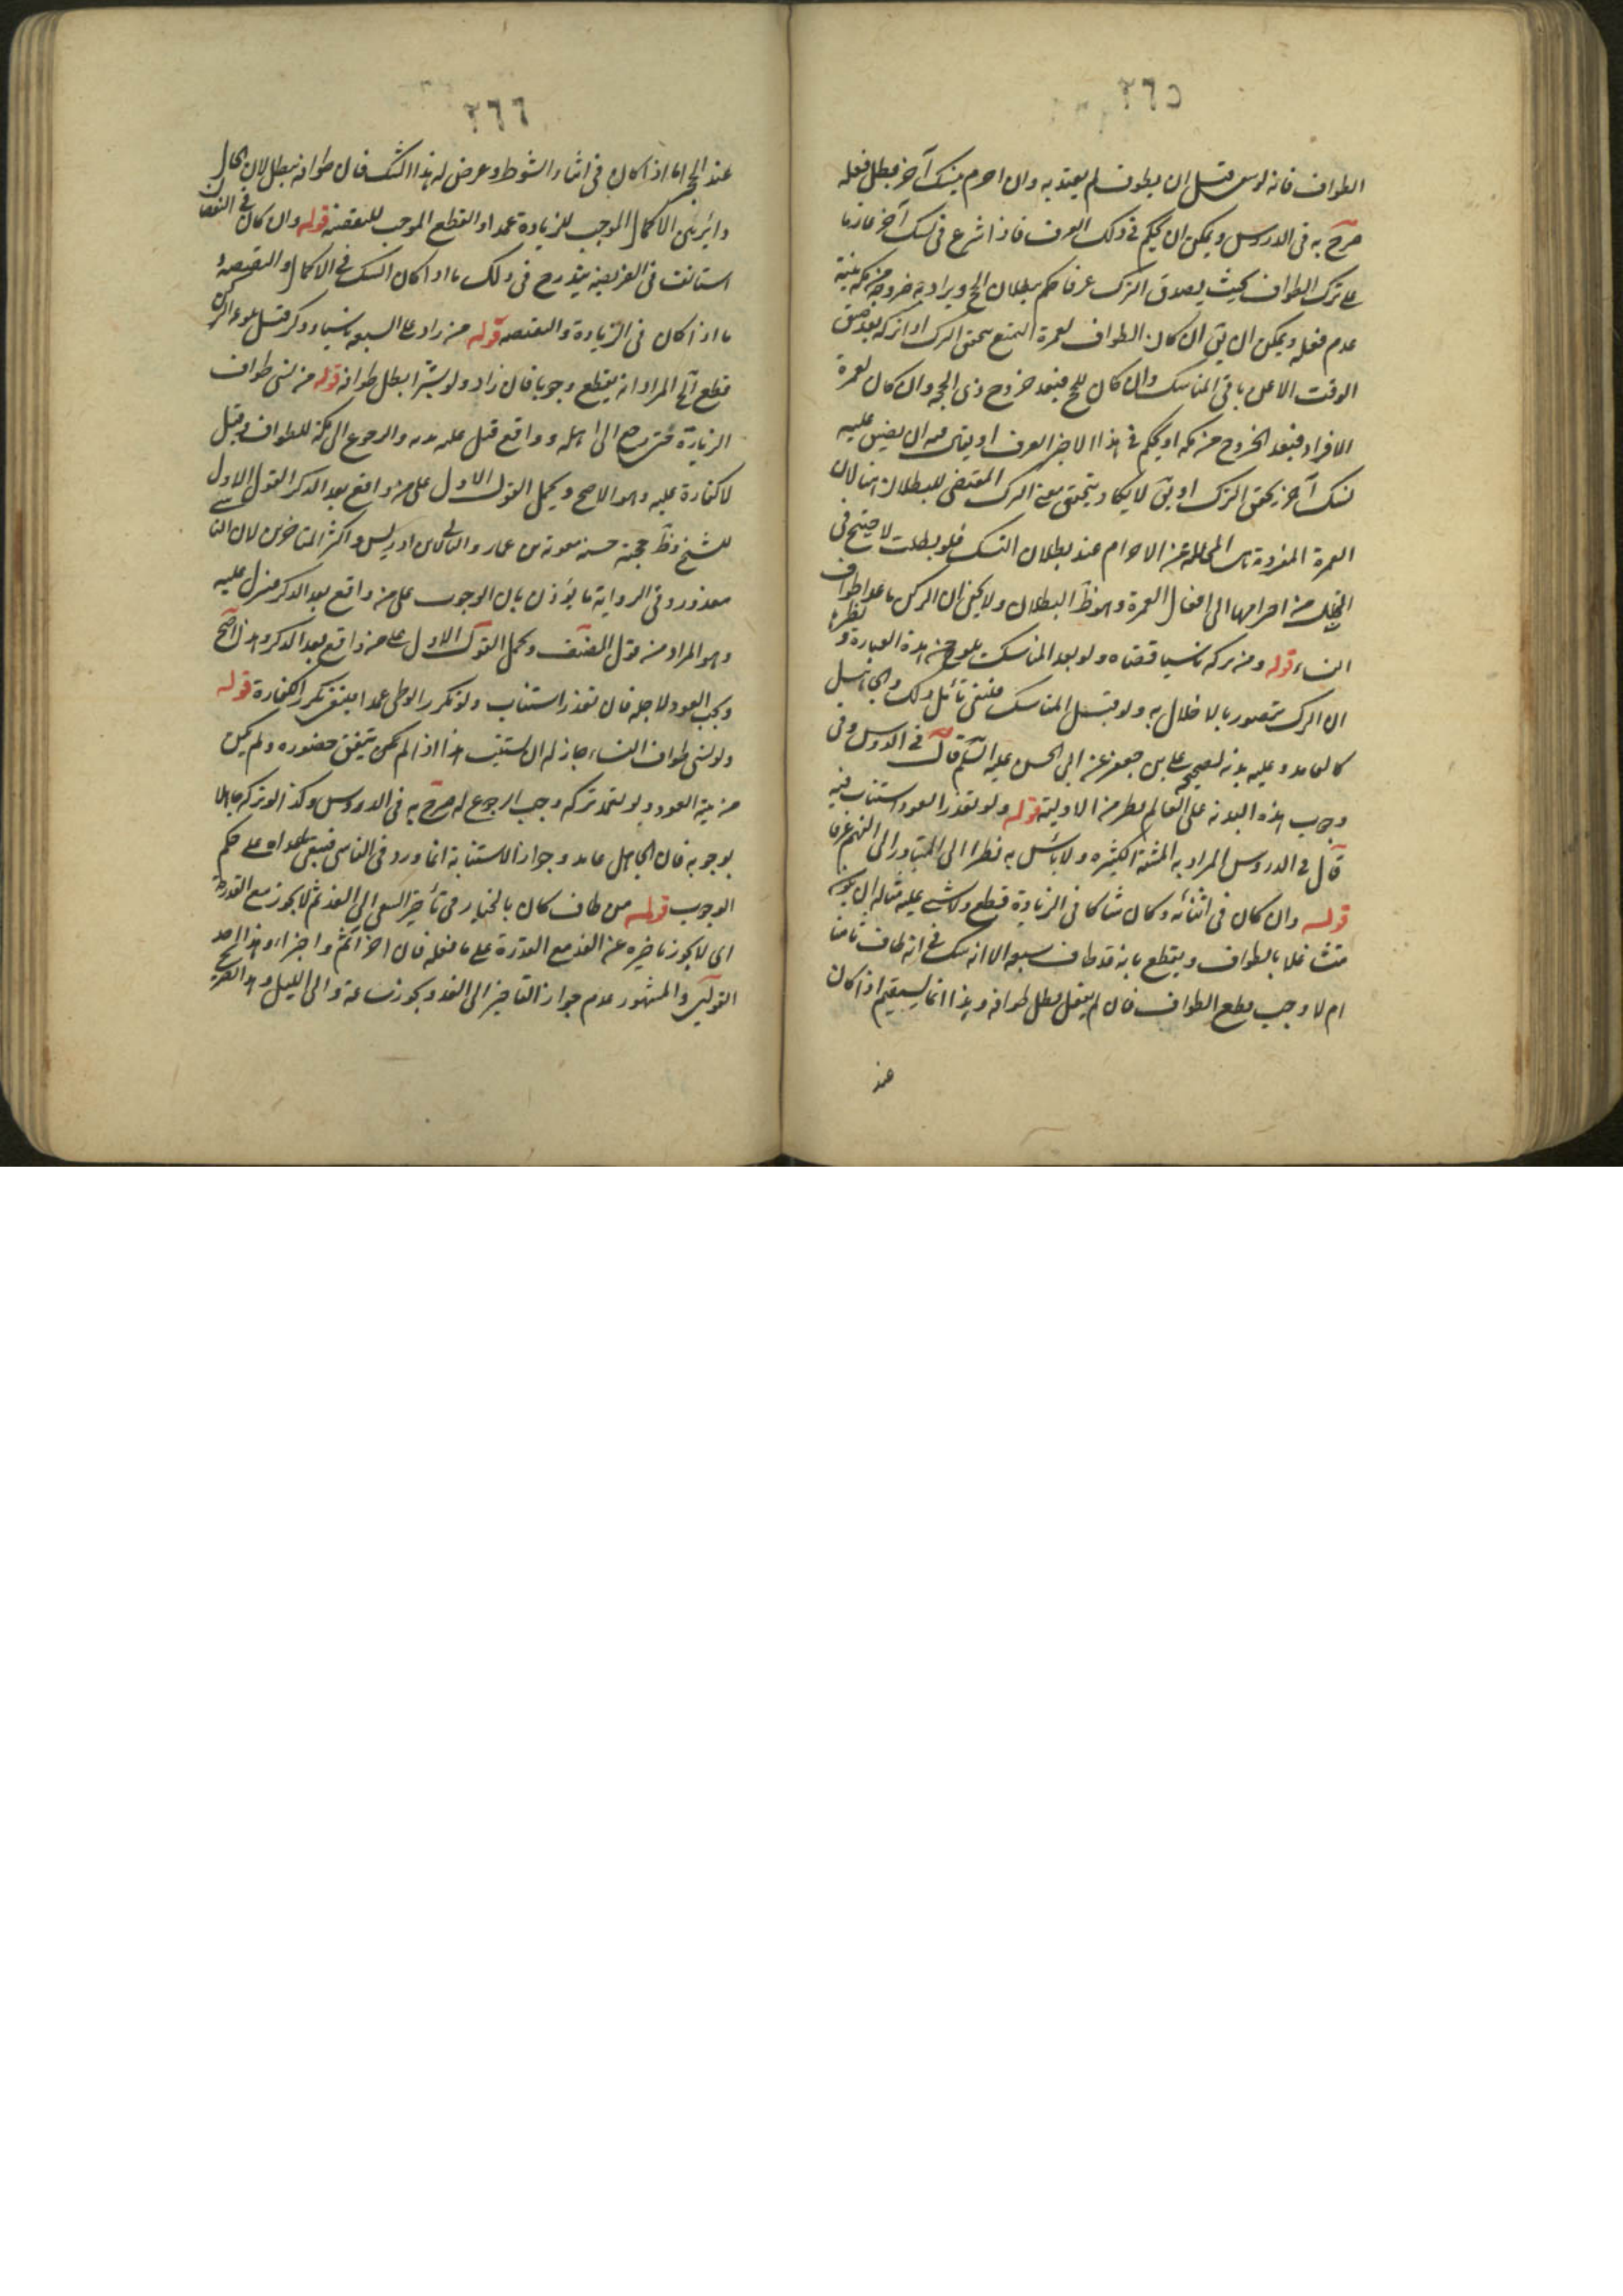 ٢٦٥
الطواف فانه لو سعى قبل ان يطوف لم يعتد به وان احرم بنسك آخر بطل فعله
صرح به فى الدروس ويمكن ان يحكم فى ذلك العرف فاذا شرع فى نسك آخر عازما
على ترك الطواف بحيث يصدق الترك عرفا حكم ببطلان الحج ويراد به خروجه من مكة بنية
عدم فعله ويمكن ان يق ان كان الطواف لعمرة التمتع تحقق الترك اذا تركه بعد ضيق
الوقت الا عن باقى المناسك وان كان للحج فبعد خروج ذى الحجة وان كان لعمرة
الافراد فبعد الخروج من مكة او يحكم فى هذا الاخير العرف او يقال فيه ان يضيق عليه
نسك آخر تحقق الترك او يق لا يكاد يتحقق معنى الترك المقتضى للبطلان هنا لان
العمرة المفردة هى المحللة من الاحرام عند بطلان النسك فلو بطلت لاحتيج فى
التحلل من احرامها الى افعال العمرة وهو ظ البطلان ولا يخفى ان الركن ما عدا طواف
النساء قوله ومن تركه ناسيا قضاه ولو بعد المناسك يلوح من هذه العبارة و نظرها
ان الترك يتصور بالاخلال به ولو قبل المناسك فينبغى تأمل ذلك والجاهل
كالعامد وعليه بدنه لصحيحه على بن جعفر عن ابى الحسن عليه السلم قال فى الدروس وفى
وجوب هذه البدنة على العالم نظر من الاولية قوله ولو تعذر العود استناب فيه
قال فى الدروس المراد به المشقة الكثيره ولا باس به نظرا الى المتبادر الى الفهم عرفا
قوله وان كان فى اثنائه وكان شاكا فى الزيادة قطع ولا شىء عليه مثاله ان يكون
متشاغلا بالطواف ويقطع بانه قد طاف سبعه الا انه شك فى انه طاف ثامنا
ام لا وجب قطع الطواف فان لم يفعل بطل طوافه وهذا انما يستقيم اذا كان
عند
٢٦٦
عند الحجر اما اذا كان فى اثناء الشوط وعرض له هذا الشك فان طوافه يبطل لان الحال
دائر بين الاكمال الموجب للزيادة عمدا والقطع الموجب للنقصه قوله وان كان فى النقصان
استانف فى الفريضه يندرج فى ذلك ما اذا كان الشك فى الاكمال والنقيصه و
ما اذا كان فى الزيادة والنقصه قوله من زاد على السبعه ناسيا وذكر قبل بلوغه الركن
قطع آلخ المراد انه يقطع وجوبا فان زاد ولو يسيرا بطل طوافه قوله من نسى طواف
الزيارة حتى رجع الى اهله وواقع قيل عليه بدنه والرجوع الى مكة للطواف وقيل
لا كفارة عليه وهو الاصح ويحمل القول الاول على من واقع بعد الذكر القول الاول
للشيخ وظ حجته حسنه معويه بن عمار والثانى لابن ادريس واكثر المتاخرين لان الناسى
معذور وفى الرواية ما يؤذن بان الوجوب على من واقع بعد الذكر فينزل عليه
وهو المراد من قول المصنف ويحمل القول الاول على من واقع بعد الذكر وهذا اصح
ويجب العود لاجله فان تعذر استناب ولو تكرر الوطى عمدا فينبغى تكرر الكفارة قوله
ولو نسى طواف النساء جاز له ان يستنيب هذا اذا لم يكن يتفق حضوره ولم يكن
من نية العود ولو تعمد تركه وجب الرجوع له صرح به فى الدروس وكذا لو تركه جاهلا
بوجوبه فان الجاهل عامد وجواز الاستنابة انما ورد فى الناسى فيبقى ما عداه على حكم
الوجوب قوله من طاف كان بالخيار فى تأخير السعى الى الغد ثم لا يجوز مع القدرة
اى لا يجوز تاخيره عن الغد مع القدرة على ما فعله فان اخر آثم واجزاء وهذا احد
القولين والمشهور عدم جواز التاخير الى الغد ويجوز ساعة والى الليل وهذا